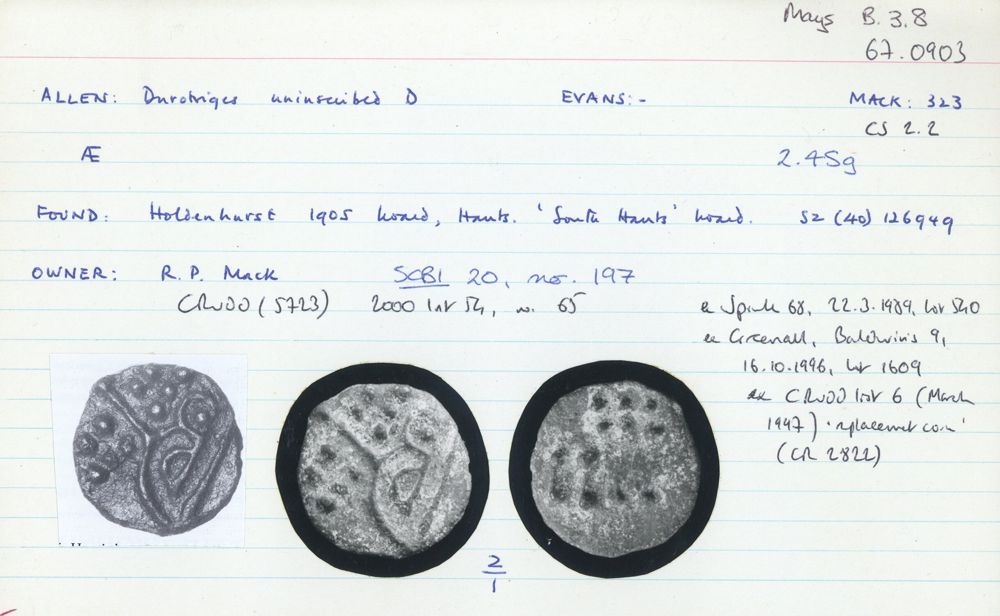 Mays B.3.8
67.0903
ALLEN: Durotriges uninscribed D EVANS:- MACK: 323
CS 2.2
Æ 2.45g
FOUND: Holdenhurst 1905 hoard, Hants. 'South Hants' hoard. SZ (40) 126949
OWNER: R.P. Mack SCBI 20, no. 197
CR000 (5723) 2000 list 54, no. 65
ex Spink 68, 22.3.1989, lot 540
ex Greenall, Baldwin's 9,
16.10.1996, lot 1609
ex list 6 (March
1997) 'replacement coin'
(CR 2822)
2
1